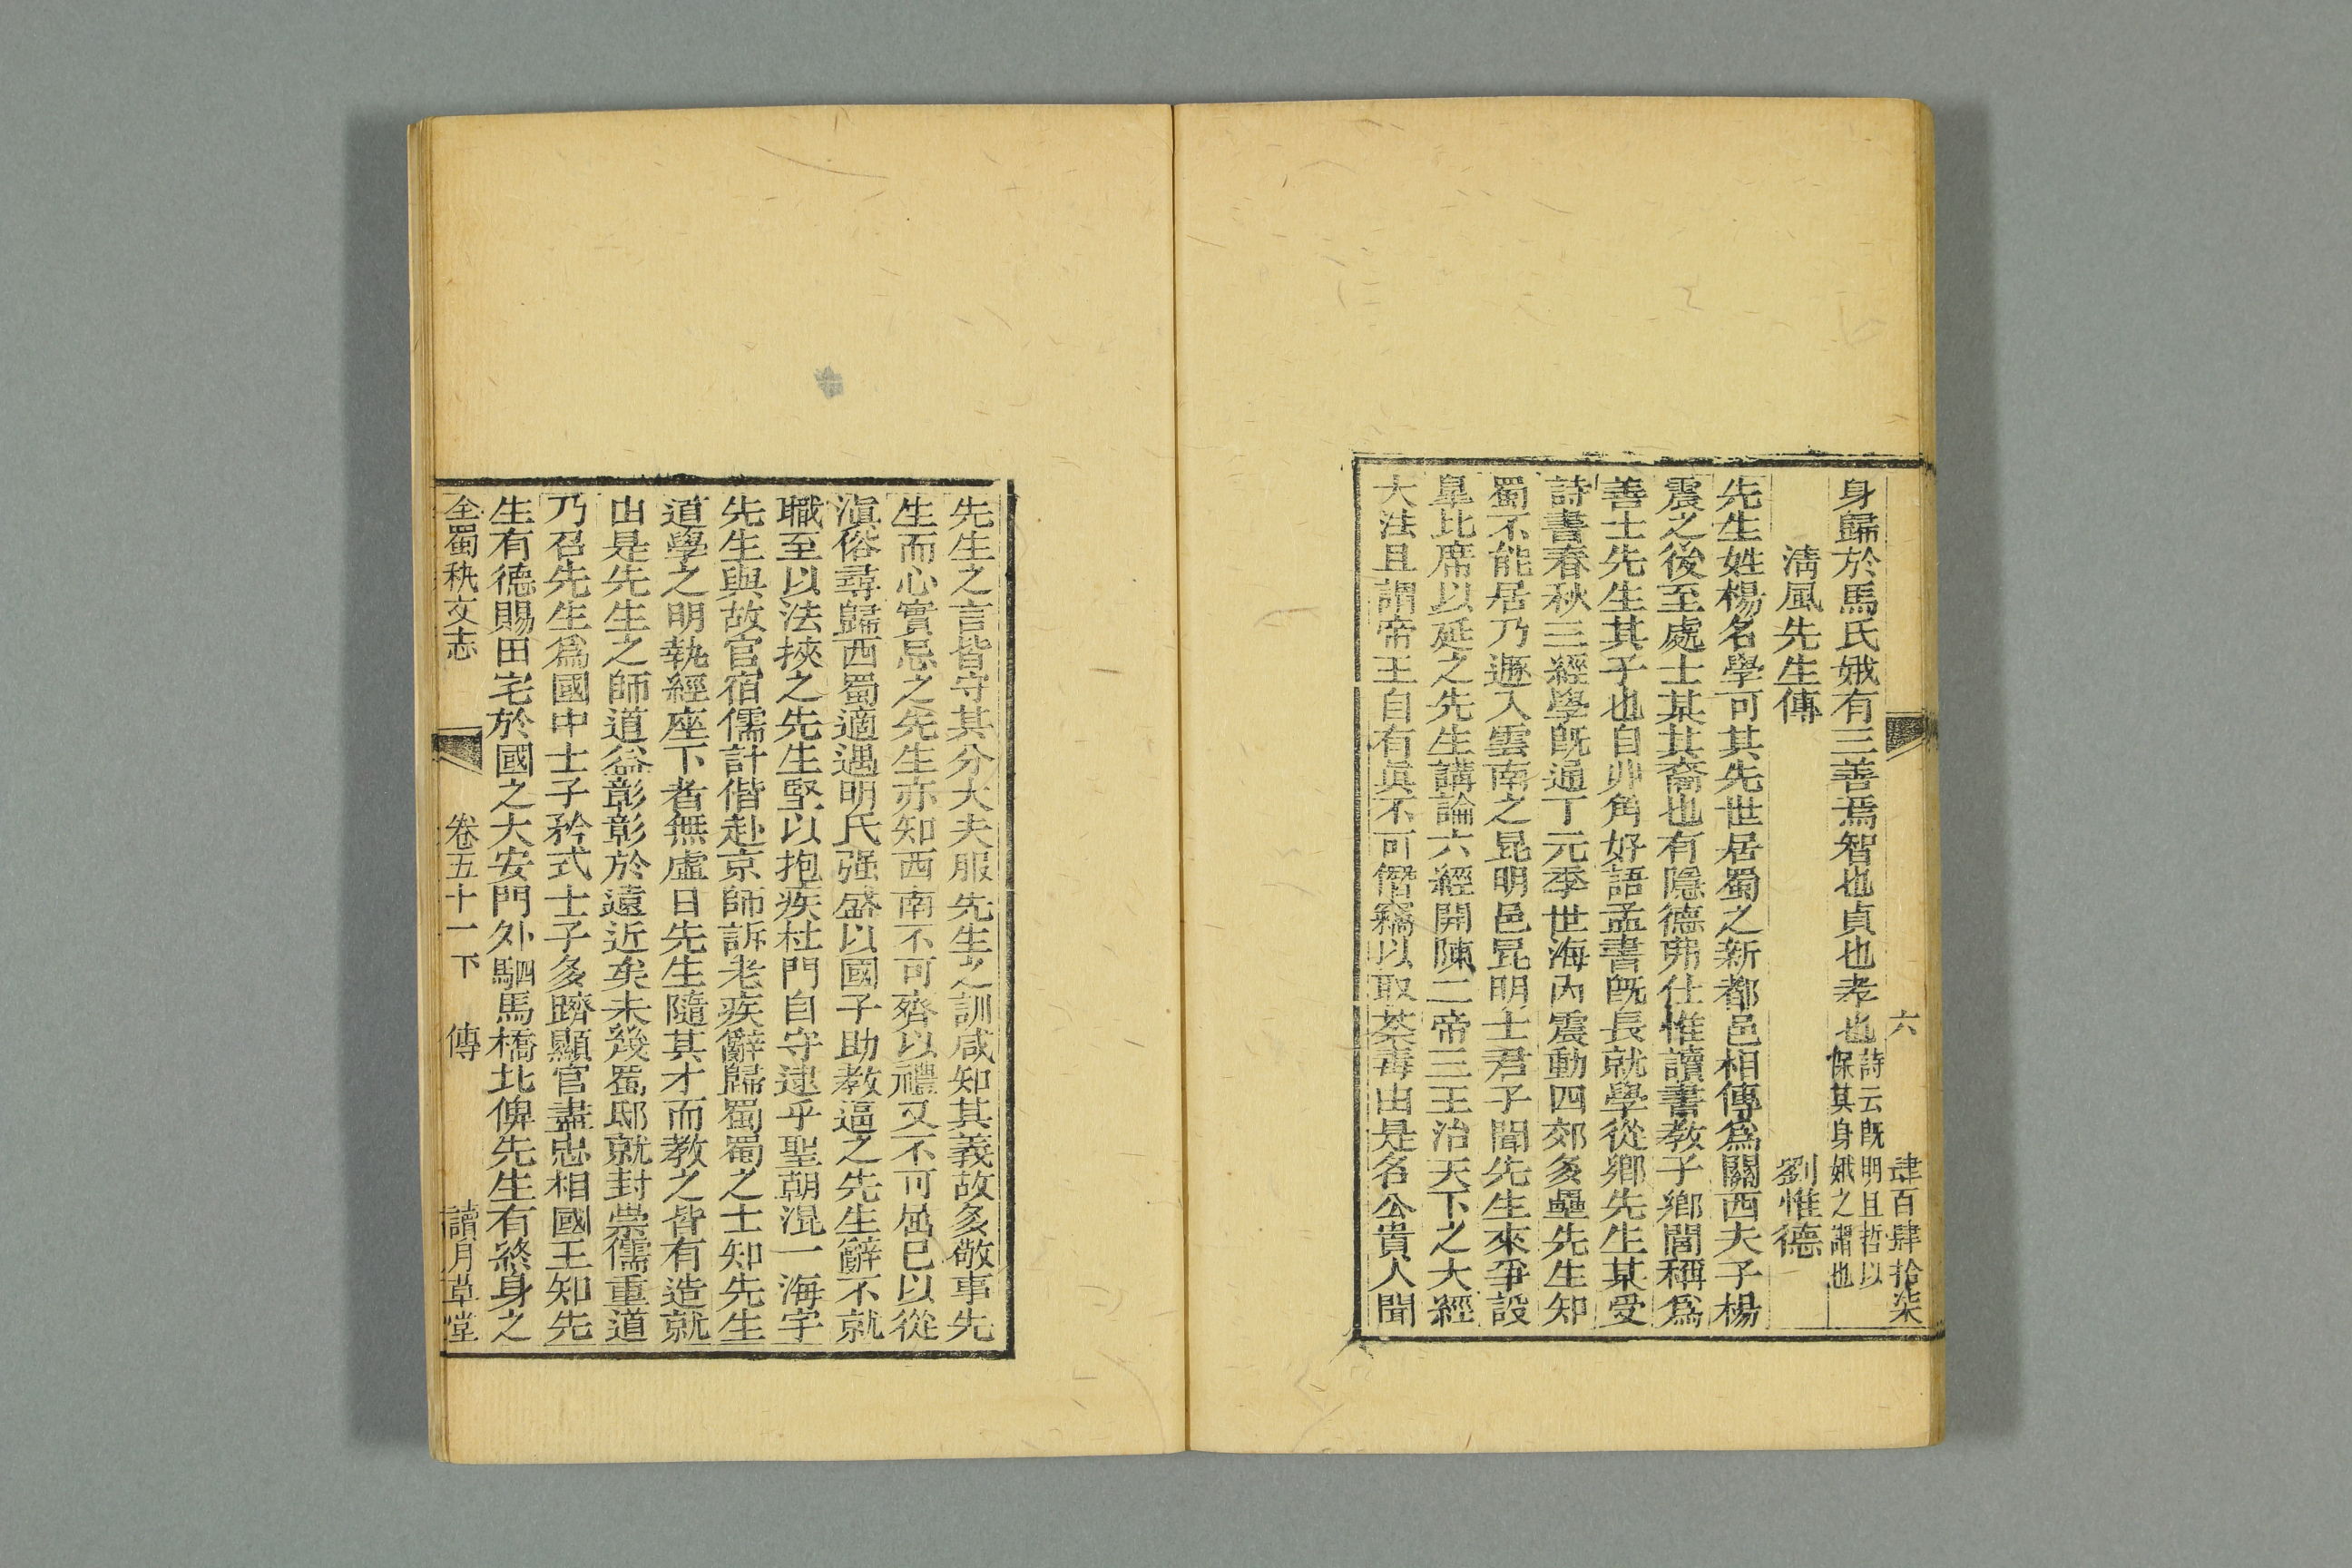 六　肆百肆拾柒
身歸於馬氏娥有三善焉智也貞也孝也詩云既明且哲以保其身娥之謂也
清風先生傳　劉惟德
先生姓楊名學可其先世居蜀之新都邑相傳為關西夫子楊
震之後至處士某其裔也有隱德弗仕惟讀書教子鄉閭稱為
善士先生其子也自丱角好語孟書既長就學從鄉先生某受
詩書春秋三經學既通丁元季世海內震動四郊多壘先生知
蜀不能居乃遯入雲南之昆明邑昆明士君子聞先生來爭設
臯比席以延之先生講論六經開陳二帝三王治天下之大經
大法且謂帝王自有眞不可僭竊以取荼毒由是名公貴人聞
先生之言皆守其分大夫服先生之訓咸知其義故多敬事先
生而心實忌之先生亦知西南不可齊以禮又不可屈已以從
滇俗尋歸西蜀適遇明氏强盛以國子助教逼之先生辭不就
職至以法挾之先生堅以抱疾杜門自守逮乎聖朝混一海宇
先生與故官宿儒計偕赴京師訴老疾辭歸蜀蜀之士知先生
道學之明執經座下者無虛日先生隨其才而教之皆有造就
由是先生之師道益彰彰於遠近矣未幾蜀邸就封崇儒重道
乃召先生爲國中士子矜式士子多躋顯官盡忠相國王知先
生有德賜田宅於國之大安門外駟馬橋北俾先生有終身之
全蜀秇文志　卷五十一下　傳　讀月草堂